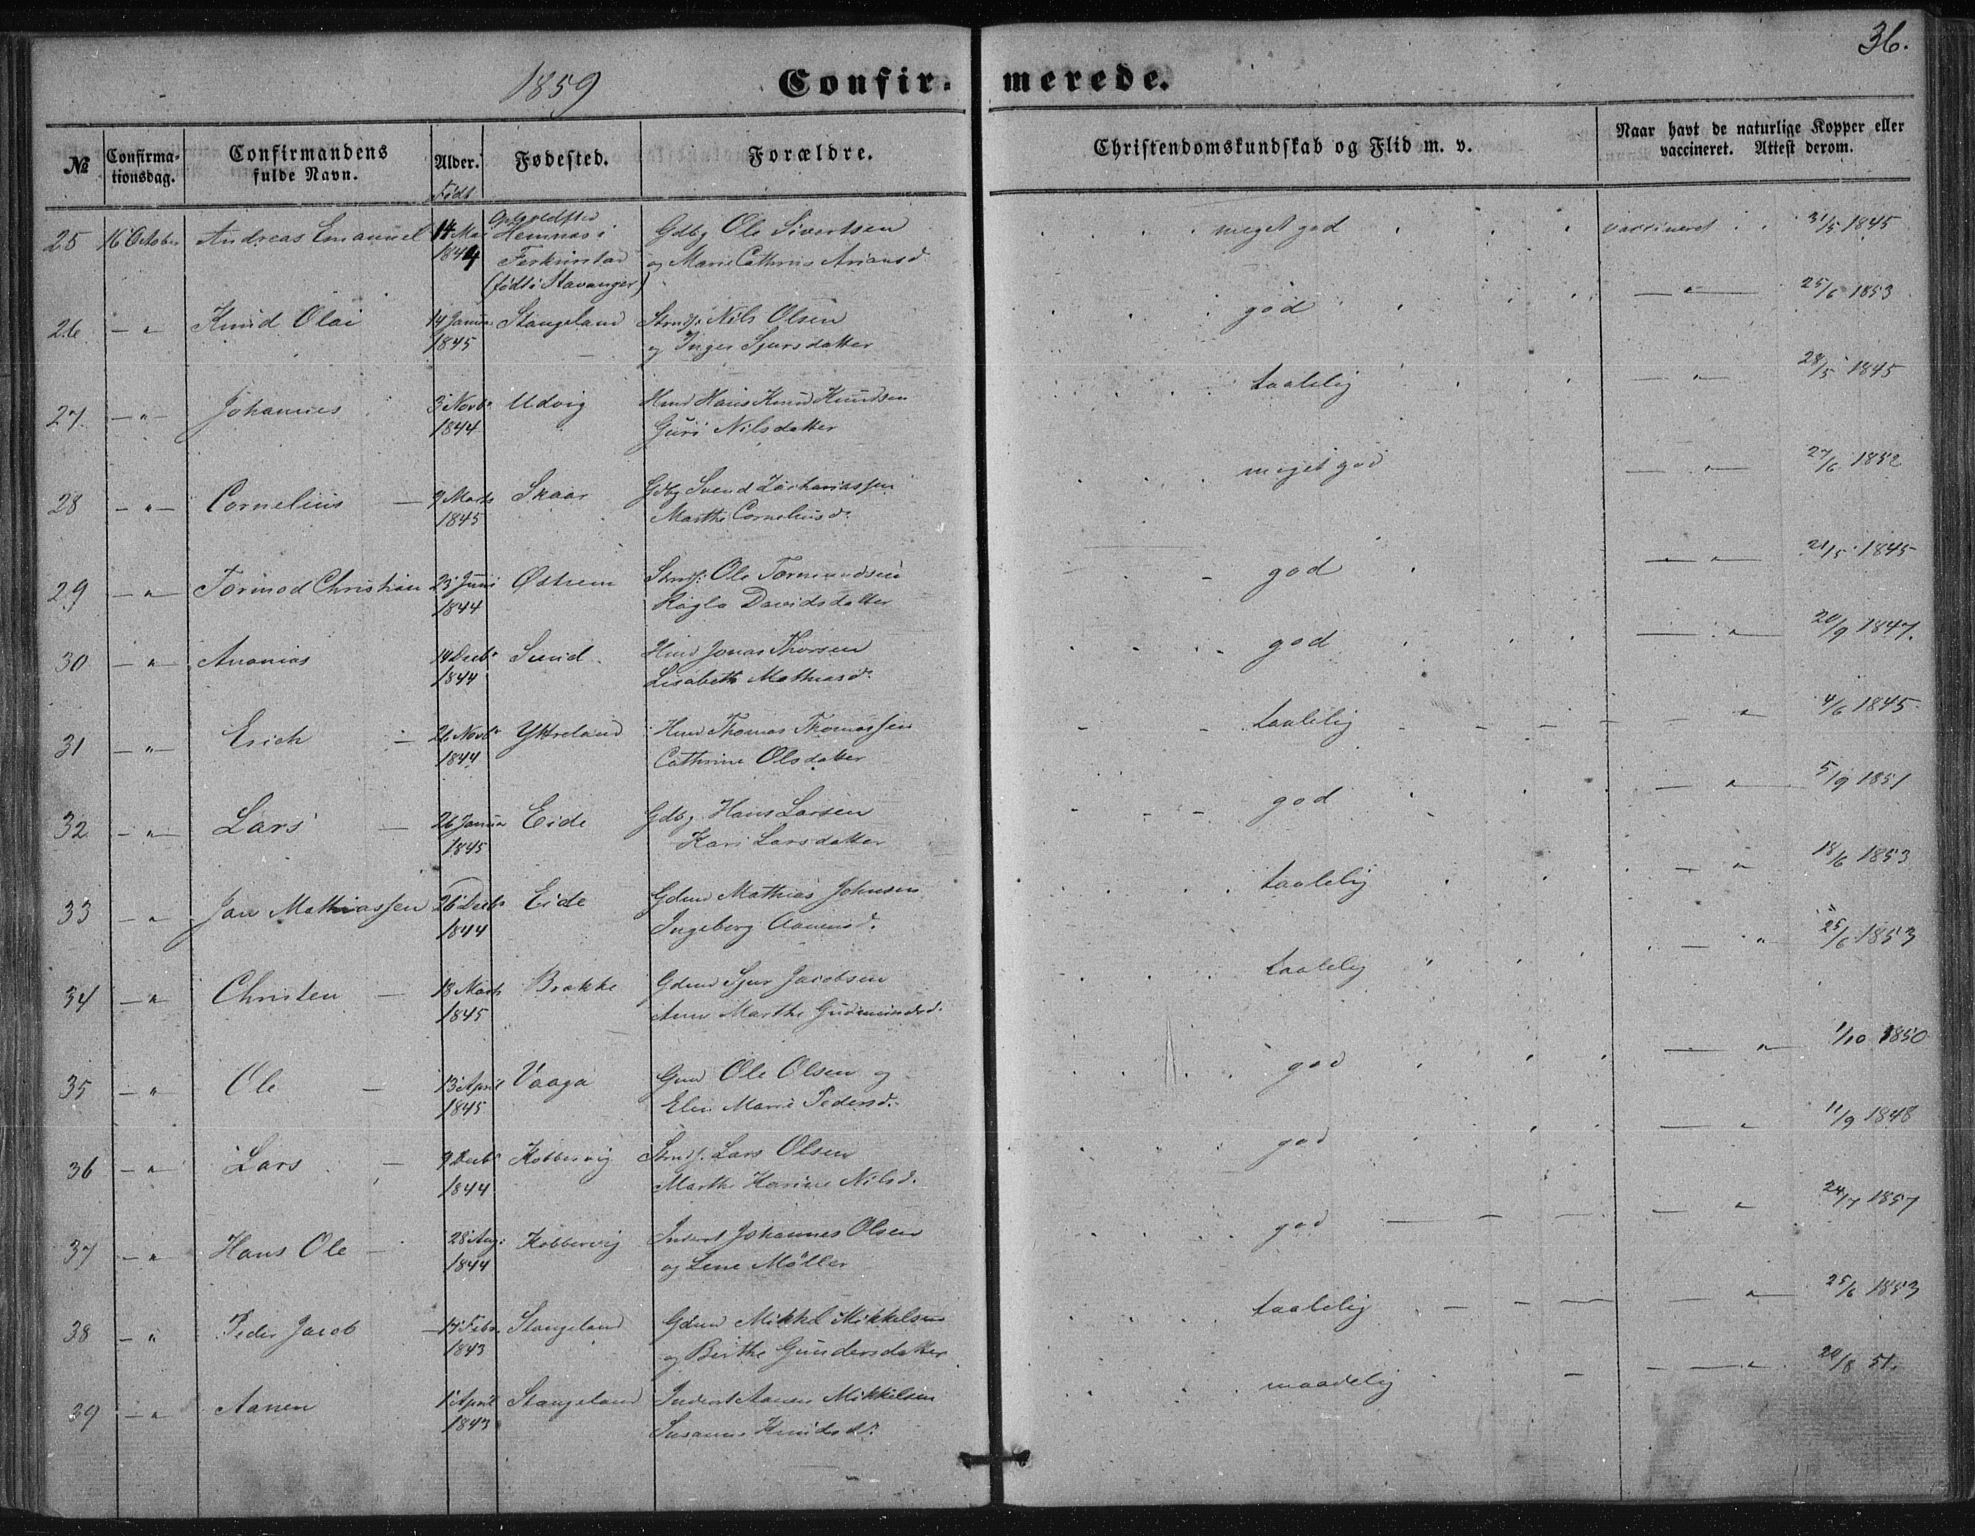 36.
1859 Confirmerede.
№ Confirmationsdag. Confirmandens fulde Navn. Alder. Fødested. Forældre. Christendomskundskab og Flid m. v. Naar havt de naturlige Kopper eller vaccineret. Attest derom.
Født
25 16 October Andreas Emanuel 14 Mai Hemnæs i Gdbg Ole Sivertsen meget god vaccineret 31/5 1845
1844 Ferkinstad og Marie Cathrine
(født i Stavanger)
26 — " Knud Olai 14 Januar Stangeland Strdsf. Nils Olsen god — " — 25/6 1853
1845 og Inger Sjursdatter
27 — " — Johannes 3 Novbr Udvig Hmd Hans Knud Knudsen taalelig — " — 28/5 1845
1844 Guri Nilsdatter
28 — " — Cornelius — 9 Marts Skaar Gdbg Svend Zachariassen meget god — " — 27/6 1852
1845 Marthe Corneliusd.
29 — " — Tormod Christian 23 Juni Østrem Strdsf. Ole Tormundsen god — " — 21/5 1845
1844 Ragla Davidsdatter
30 — " — Ananias 14 Decbr Sund Hmd Jonas Thorsen god — " — 20/9 1847.
1844 Lisabeth Mathiasd.
31 — " — Erich — 21 Novbr Yttreland Hmd Thomas Thomassen taalelig — " 4/6 1845
1844 Cathrine Olsdatter
32 — " — Lars — 26 Januar Eide Gdbg. Hans Larsen god — " — 5/9 1851
1845 Kari Larsdatter
33 — " Jan Mathiassen 26 Decbr Eide Gdmd Mathias Johnsen taalelig — " 18/6 1853
1844 Ingeborg Aanensd.
34 — " — Christen — 13 Marts Brekke Gdmd Sjur Jacobsen taalelig — " 25/6 1853
1845 Ane Marthe Gudmundsd.
35 — " — Ole — 13 April Vaaga Gmd Ole Olsen og god — " — 1/10 1850
1845 Elen Marie Pedersd.
36 — " — Lars — 9 Decbr Kobbervig Strdsf. Lars Olsen god — " 11/9 1848
1844 Marthe Karine Nilsd.
37 — " — Hans Ole — 28 Aug. Kobbervig Inderst Johannes Olsen god — " 24/7 1857
1844 og Lene Møller
38 — " Peder Jacob — 17 Febr. Stangeland Gdmd Mikkel Mikkelsen taalelig — " — 25/6 1853
1843 og Berthe Gundersdatter
39 — " Aanen 1 April Stangeland Inderst Aanen Mikkelsen maadelig — " 20/8 51.
1843 Susanne Knudsd.